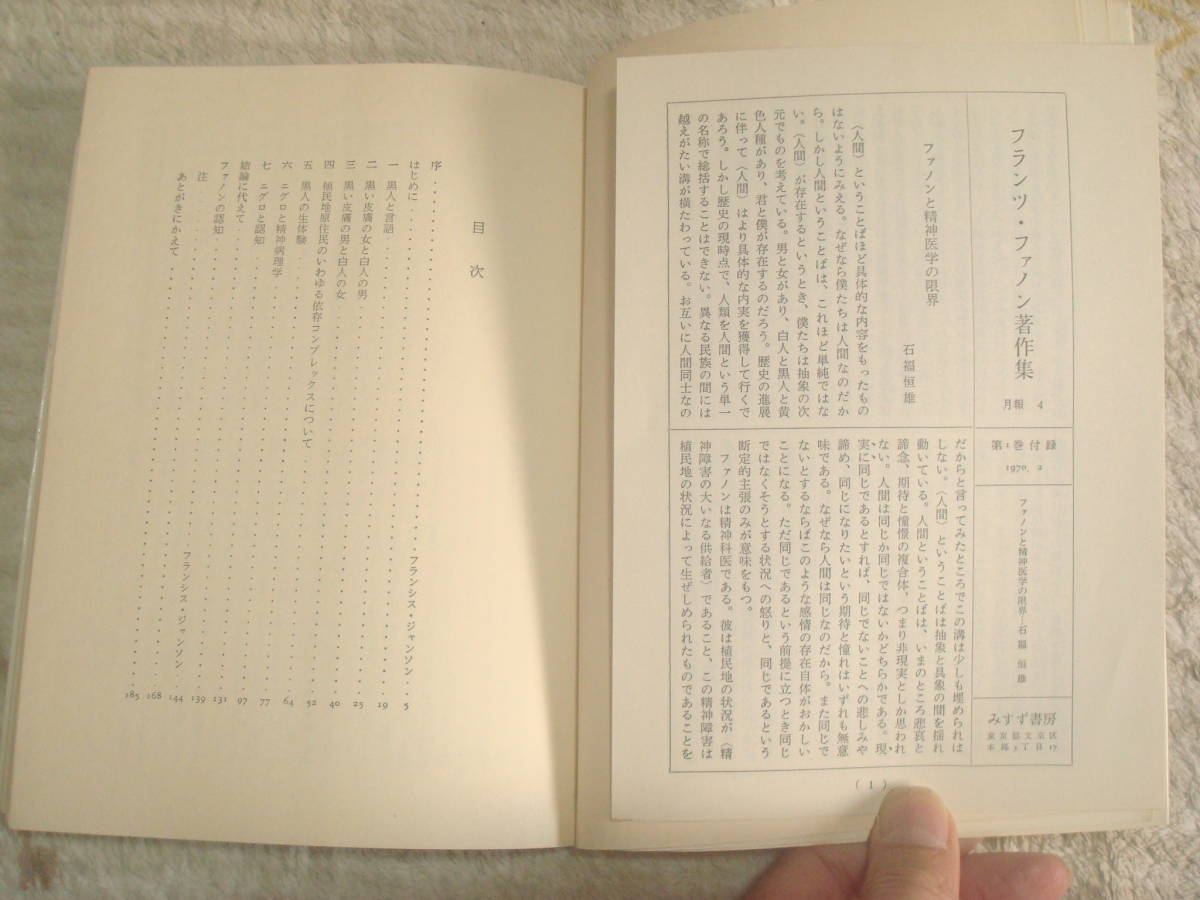 フランツ・ファノン著作集
月報 4
第1巻付録
1970. 2
ファノンと精神医学の限界…石福恒雄
みすず書房
東京都文京区
本郷3丁目17
ファノンと精神医学の限界
石福恒雄
〈人間〉ということばほど具体的な内容をもったもの
はないようにみえる。なぜなら僕たちは人間なのだか
ら。しかし人間ということばは、これほど単純ではな
い。〈人間〉が存在するというとき、僕たちは抽象の次
元でものを考えている。男と女があり、白人と黒人と黄
色人種があり、君と僕が存在するのだろう。歴史の進展
に伴って〈人間〉はより具体的な内実を獲得して行くで
あろう。しかし歴史の現時点で、人類を人間という単一
の名称で総括することはできない。異なる民族の間には
越えがたい溝が横たわっている。お互いに人間同士なの
だからと言ってみたところでこの溝は少しも埋められは
しない。〈人間〉ということばは抽象と具象の間を揺れ
動いている。人間ということばは、いまのところ悲哀と
諦念、期待と憧憬の複合体、つまり非現実としか思われ
ない。人間は同じか同じではないかどちらかである。現
実に同じであるとすれば、同じでないことへの悲しみや
諦め、同じになりたいという期待と憧れはいずれも無意
味である。なぜなら人間は同じなのだから。また同じで
ないとするならばこのような感情の存在自体がおかしい
ことになる。ただ同じであるという前提に立つとき同じ
ではなくそうとする状況への怒りと、同じであるという
断定的主張のみが意味をもつ。
ファノンは精神科医である。彼は植民地の状況が〈精
神障害の大いなる供給者〉であること、この精神障害は
植民地の状況によって生ぜしめられたものであることを
(1)
目次
序 フランシス・ジャンソン 5
はじめに 19
一 黒人と言語 25
二 黒い皮膚の女と白人の男 40
三 黒い皮膚の男と白人の女 52
四 植民地原住民のいわゆる依存コンプレックスについて 64
五 黒人の生体験 77
六 ニグロと精神病理学 97
七 ニグロと認知 131
結論に代えて 139
ファノンの認知 フランシス・ジャンソン 144
注 168
あとがきにかえて 185